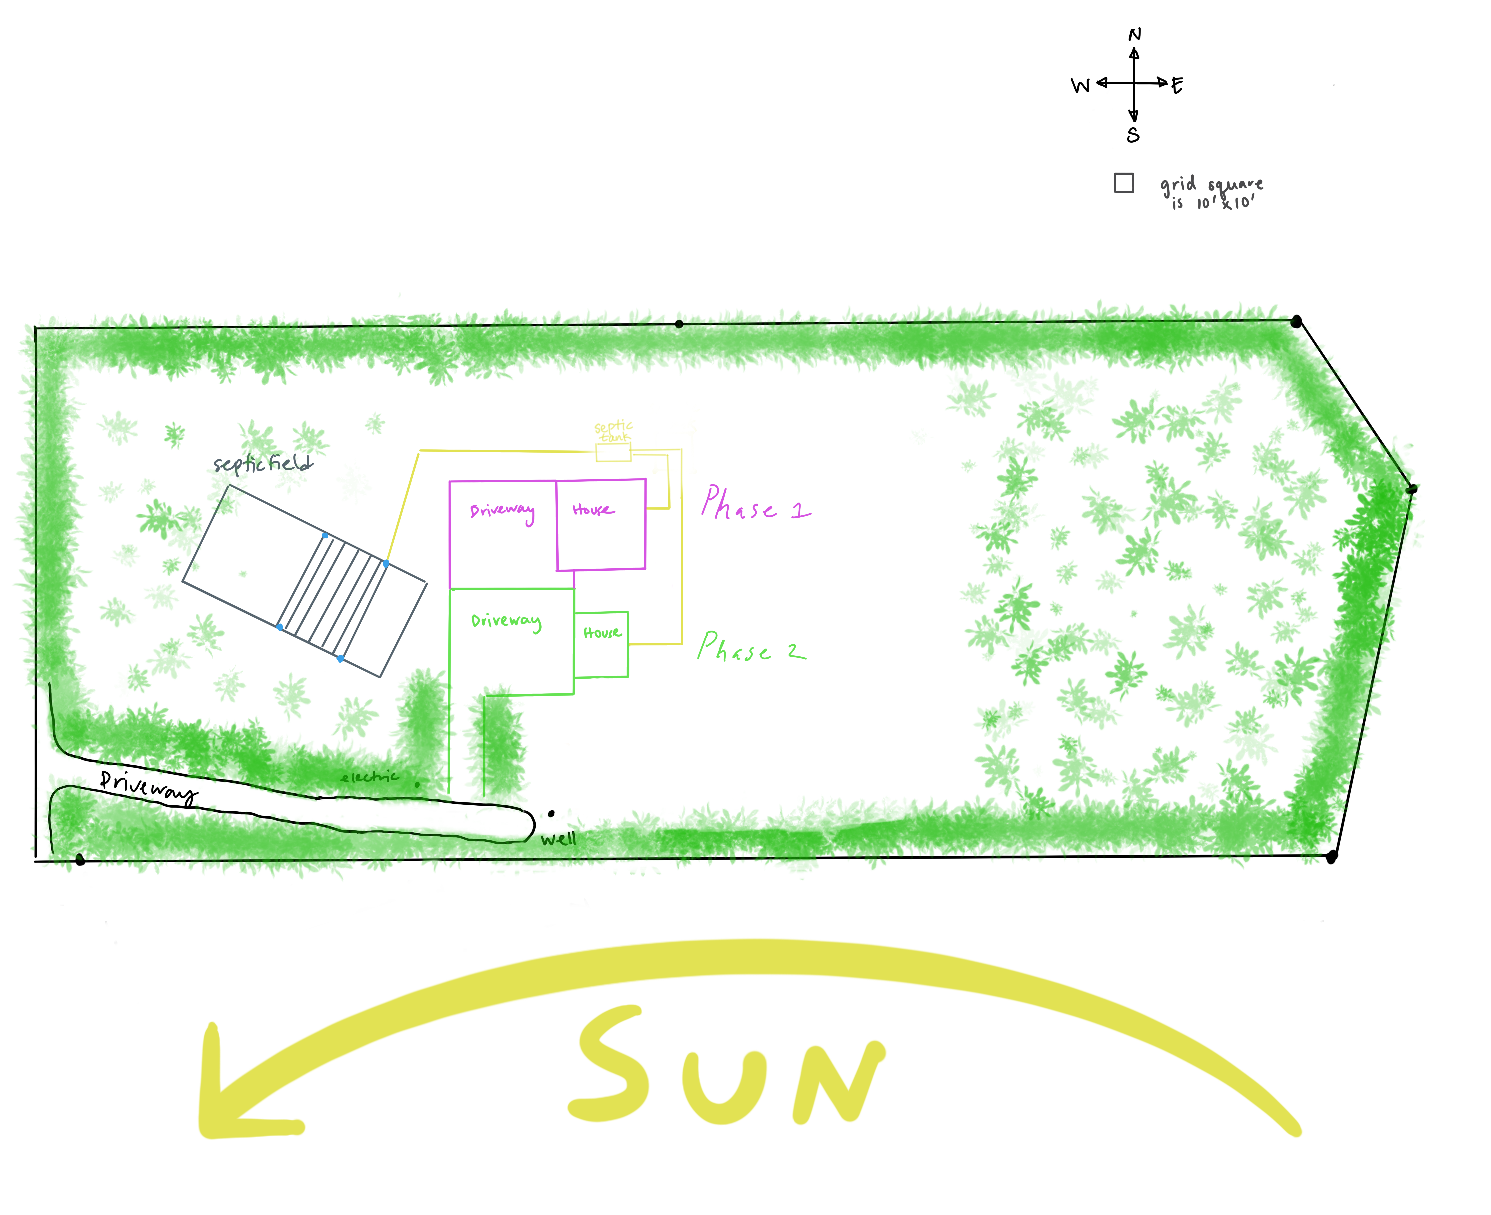 N
W E
S
grid square
is 10'x10'
septic
tank
septic field
Driveway
House
Phase 1
Driveway
House
Phase 2
electric
Driveway
well
SUN